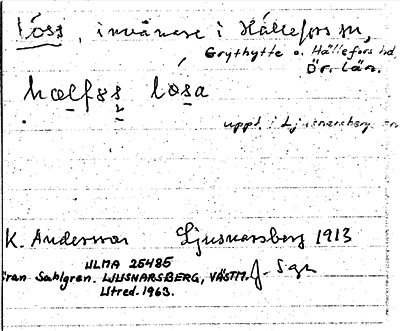 löss, invånare i Hällefors sn,
Grythytte o. Hällefors hd,
Ör. län.
hælfss lósa
uppt. i Ljusnarsberg
K. Andersson Ljusnarsberg 1913
ULMA 25485 J. Sgn
från Sahlgren. LJUSNARSBERG, VÄSTM.
Utred. 1963.